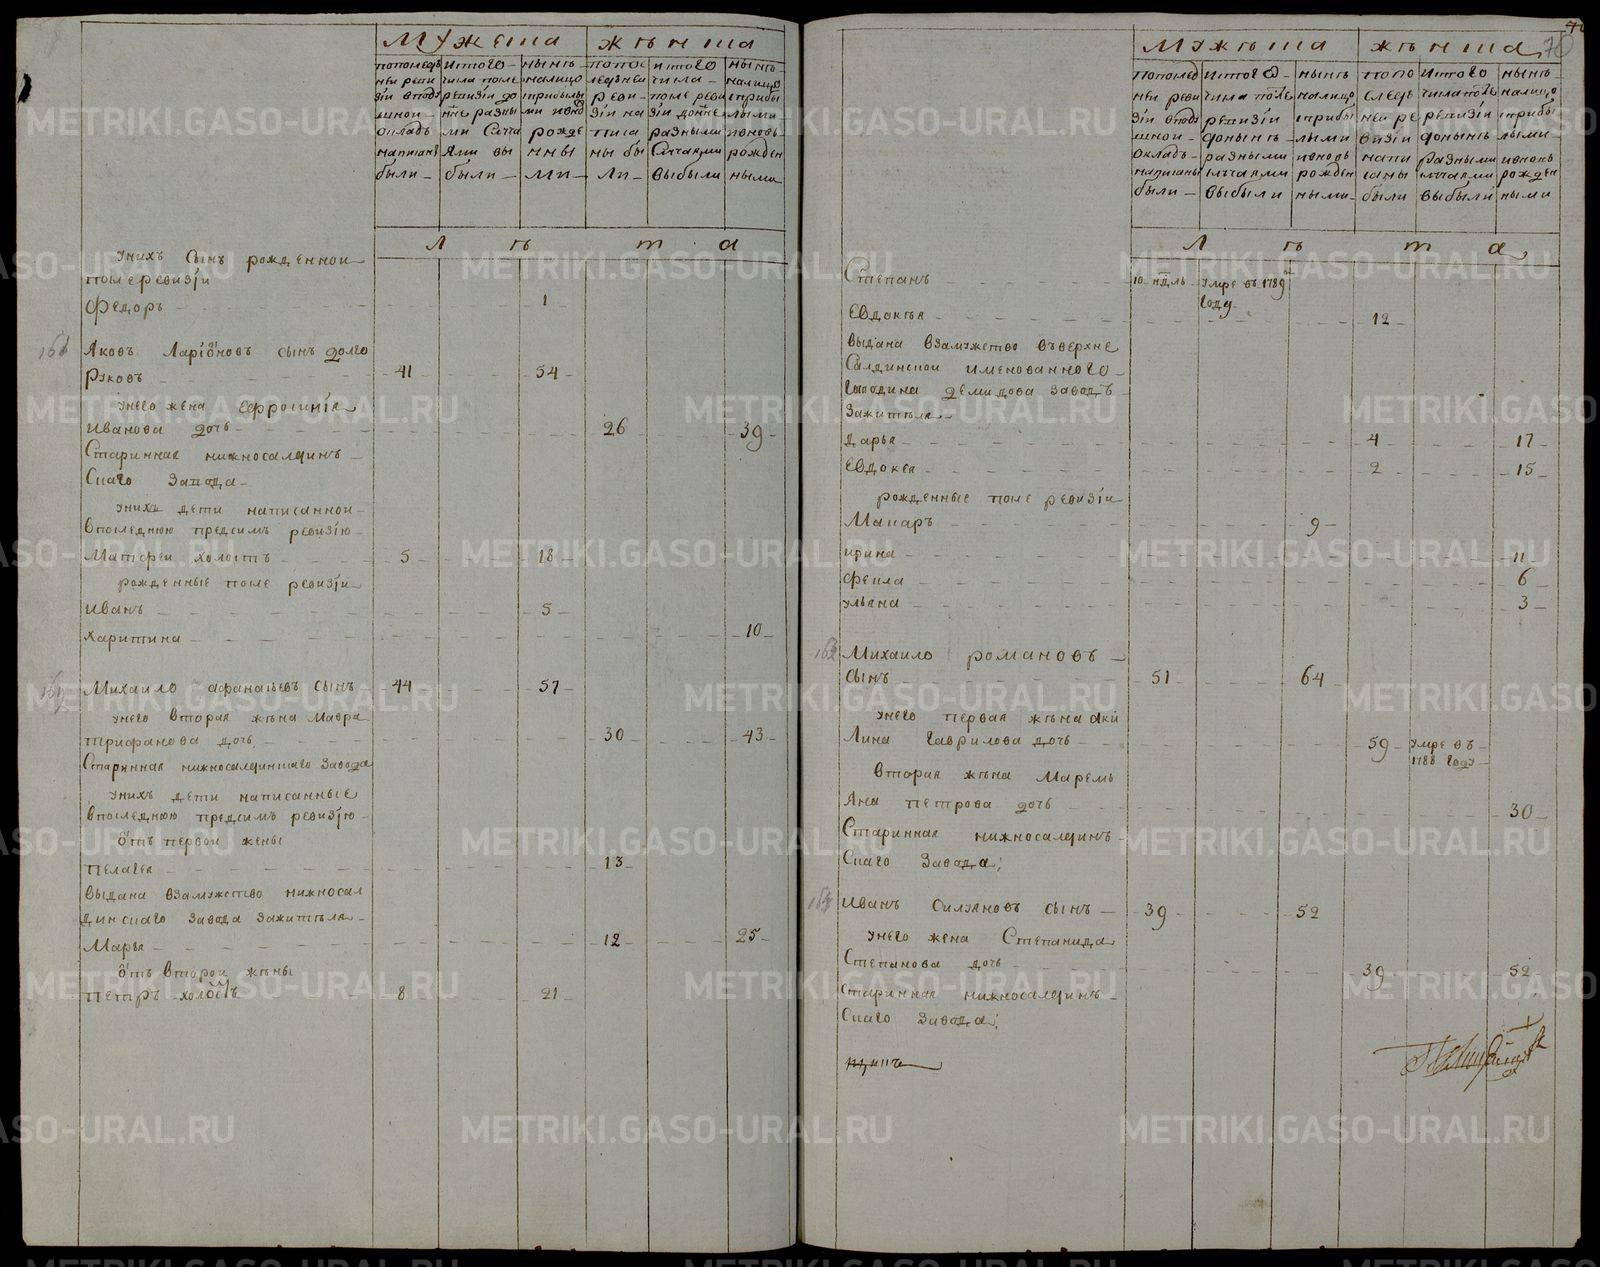 мужеска
женска
пополедъ
неи реви
зiи вподу
шнои
окладъ
написаны
были
итого
числа после
ревизiи до
нне разны
ми случа
ями вы
были
нынѣ
налицо
сприбылы
ми ивно
рожде
нны
ми
попо
ледънеи
реви
зiи на
писа
ны бы
ли
итого
числа
после реви
зiи донне
разными
случаями
выбыли
нынѣ
налицо
сприбы
лыми
ивновь
рожден
ными
лѣта
унихъ сынъ рожденнои
после ревизiи
Федоръ 1
161
Яковъ Ларiоновъ сынъ долго
руковъ 41 54
унего жена Ефросинiя
Иванова дочь 26 39
Старинная нижносалдинъ
скаго завода
унихъ дети написаннои
впоследнюю предсимъ ревизiю
Матфеи холостъ 5 18
рожденные после ревизiи
Иванъ 5
Харитина 10
Михаило афанасьевъ сынъ 44 57
унего вторая жѣна мавра
трифанова дочь 30 43
Старинная нижносалдинскаго завода
унихъ дети написанные
впоследнюю предсимъ ревизiю
отъ первои жены
Пелагея 13
выдана взамужство нижносал
динскаго завода зажителя
Марья 12 25
отъ второи жѣны
Петръ холостъ 8 21
70
мужѣска
жѣнска
пополед
неи реви
зiи вподу
шнои
окладъ
написаны
были
итого
числа после
ревизiи
донынѣ
разными
случаями
выбыли
нынѣ
налицо
сприбы
лыми
ивновь
рожден
ными
попо
следъ
неи ре
визiи
напи
саны
были
итого
числа после
ревизiи
донынѣ
разными
случаями
выбыли
нынѣ
налицо
сприбы
лыми
ивновь
рожден
ными
лѣта
Степанъ 10 ндль умре въ 1789
году
Евдокѣя 12
выдана взамужство въверхне
Салдинскои именованного
господина демидова заводъ
зажителя
Дарья 4 17
Евдокея 2 15
рожденные после ревизiи
Макаръ 9
ирина 11
фекла 6
ульяна 3
Михаило романовъ
сынъ 51 64
унего первая жѣна аки
лина гаврилова дочь 59 умре въ
1788 году
вторая жѣна Маремь
яна петрова дочь 30
Старинная нижносалдинъ
скаго завода;
Иванъ Силуяновъ сынъ 39 52
унего жена Степанида
Степанова дочь 39 52
старинная нижносалдинъ
скаго завода;
METRIKI.GASO-URAL.RU